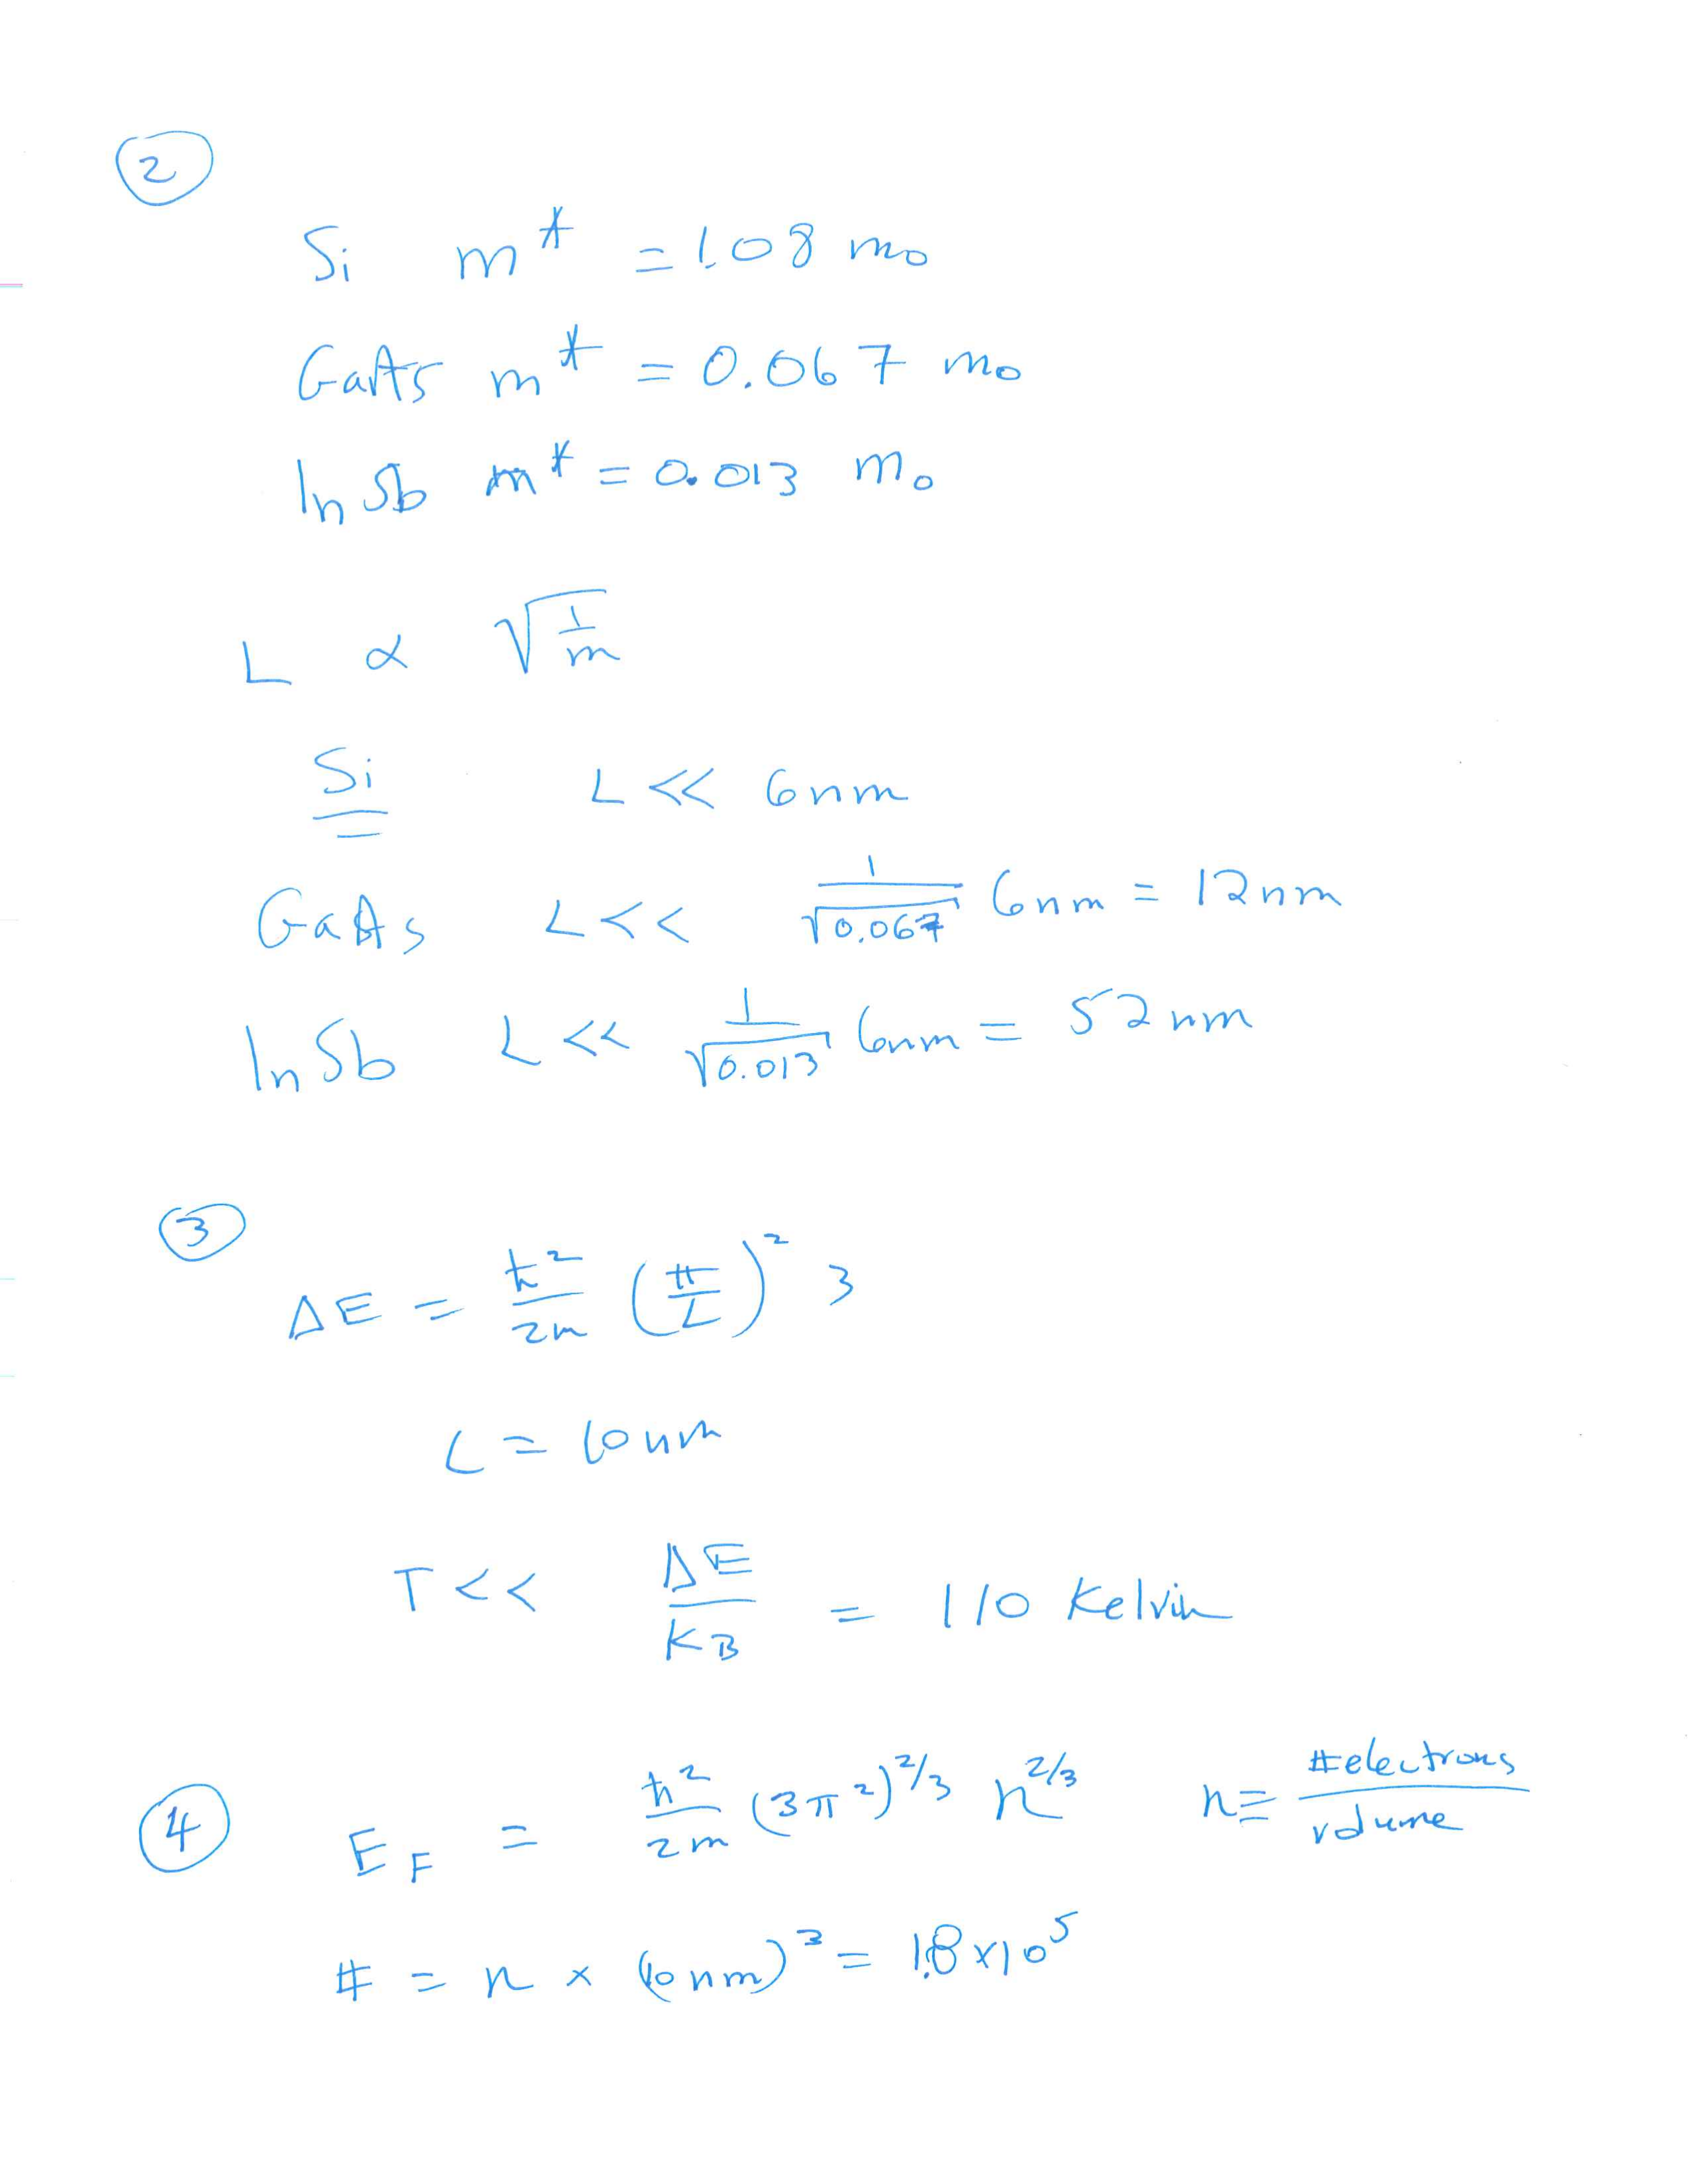 2
Si m* = 1.08 m₀
GaAs m* = 0.067 m₀
InSb m* = 0.013 m₀
L ∝ √(1/m)
Si L << 6nm
GaAs L << 1/√0.067 6nm = 12nm
InSb L << 1/√0.013 6nm = 52nm
3
ΔE = ħ²/2m (π/L)² 3
L = 10nm
T << ΔE/K_B = 110 Kelvin
4
E_F = ħ²/2m (3π²)^2/3 n^2/3 n ≡ #electrons/volume
# = n × (10nm)³ = 1.8×10⁵